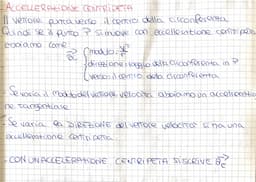 ACCELERAZIONE CENTRIPETA
Il vettore punta verso il centro della circonferenza
Quindi se il punto P si muove con accellerazione centripeta
abbiamo come
a⃗c { modulo:
direzione: raggio della circonferenza in P
verso: il centro della circonferenza
Se varia il modulo del vettore velocità abbiamo un'accelerazione
tangenziale
Se varia la DIREZIONE del vettore velocità si ha una
accellerazione centripeta
- CON UN ACCELERAZIONE CENTRIPETA SI SCRIVE a⃗c